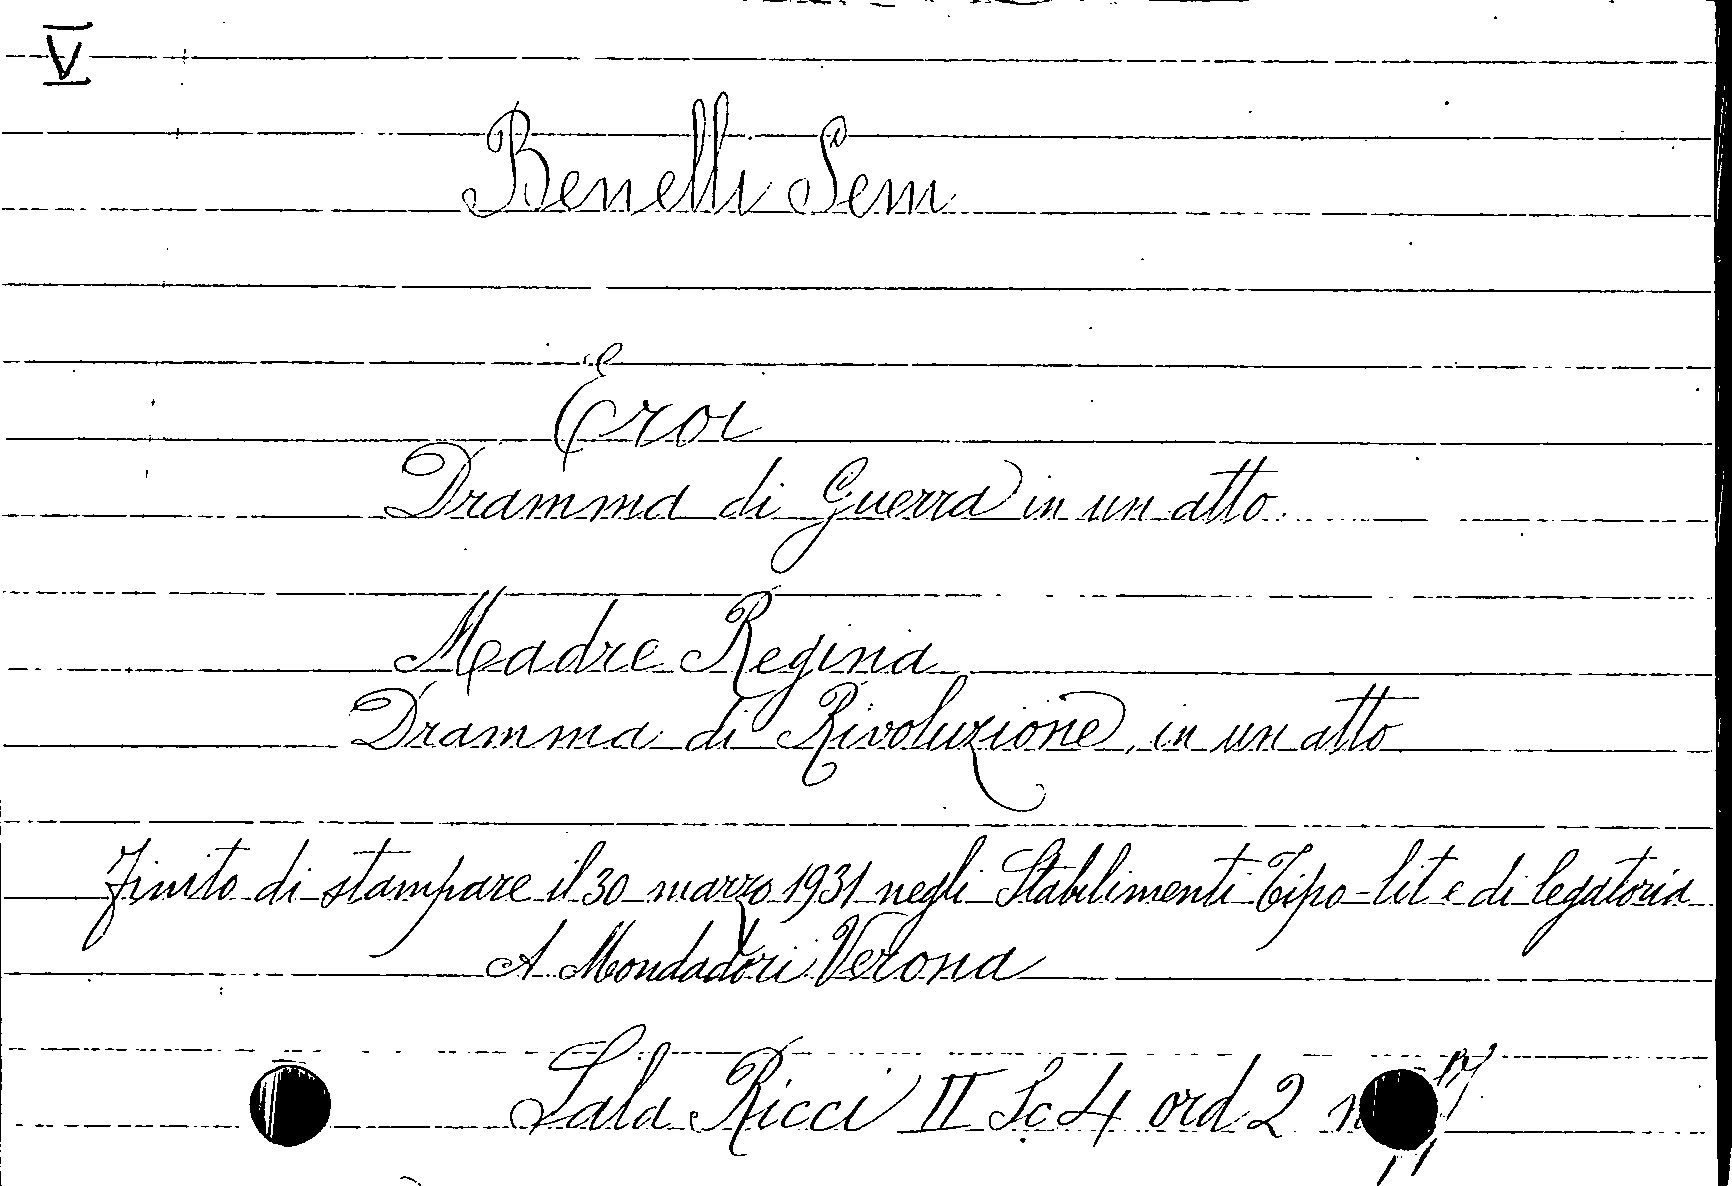 V
Benelli Sem
Eroi
Dramma di Guerra in un atto
Madre Regina
Dramma di Rivoluzione in un atto
Finito di stampare il 30 marzo 1931 negli Stabilimenti Tipo-lit e di legatoria
A Mondadori Verona
Sala Ricci II Sc 4 ord 2